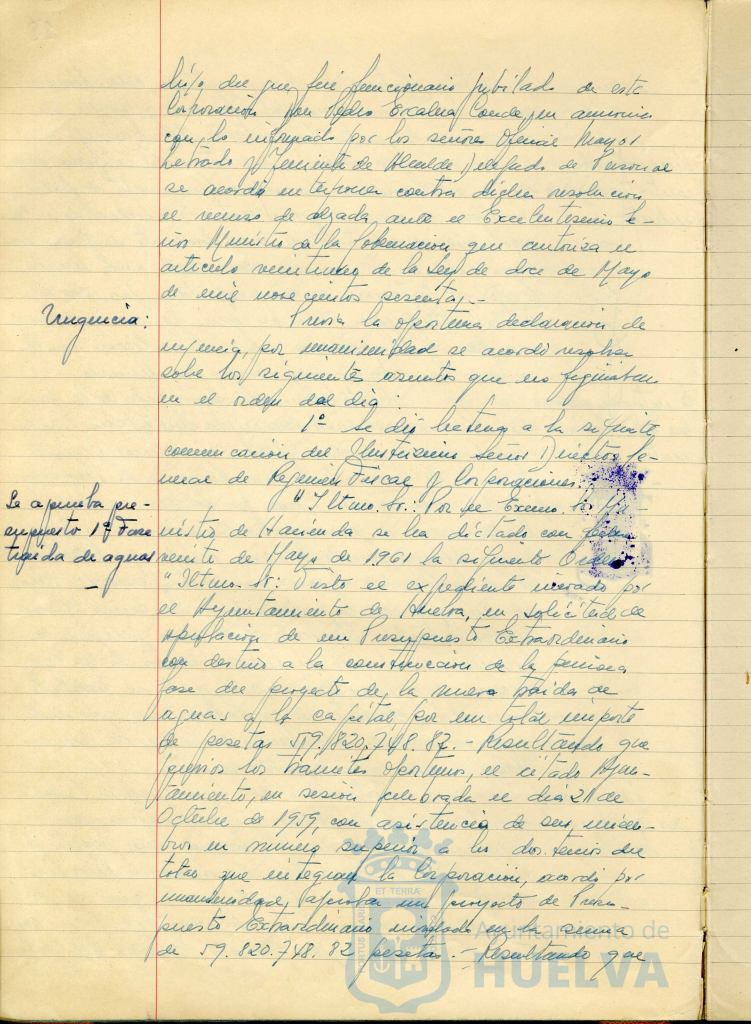 hijo del que fué funcionario jubilado de esta
Corporación Don Pedro Escalera Conde, en armonía
con lo informado por los señores Oficial Mayor
Letrado y Teniente de Alcalde Delegado de Personal
se acordó interponer contra dicha resolución
el recurso de alzada ante el Excelentísimo Se-
ñor Ministro de la Gobernación que autoriza el
artículo veintiuno de la Ley de doce de Mayo
de mil novecientos sesenta.-
Urgencia:
Previa la oportuna declaración de
urgencia, por unanimidad se acordó resolver
sobre los siguientes asuntos que no figuraban
en el orden del día:
1º Se dió lectura a la siguiente
comunicación del Ilustrísimo Señor Director Ge-
neral de Régimen Fiscal y Corporaciones.
Se aprueba pre-
supuesto 1ª Fase
traida de aguas
"Iltmo. Sr.: Por el Excmo. Sr. Mi-
nistro de Hacienda se ha dictado con fecha
veinte de Mayo de 1.961 la siguiente Orden
"Iltmo. Sr: Visto el expediente incoado por
el Ayuntamiento de Huelva, en solicitud de
aprobación de un Presupuesto Extraordinario
con destino a la construcción de la primera
fase del proyecto de la nueva traida de
aguas a la capital por un total importe
de pesetas 59.820.748.82.- Resultando que
previos los trámites oportunos, el citado Ayun-
tamiento, en sesión celebrada el día 21 de
Octubre de 1959, con asistencia de sus miem-
bros en número superior a los dos tercios del
total que integran la Corporación, acordó por
unanimidad, aprobar un proyecto de Presu-
puesto Extraordinario nivelado en la suma
de 59.820.748.82 pesetas.- Resultando que
ET TERRA
Ayuntamiento de
HUELVA